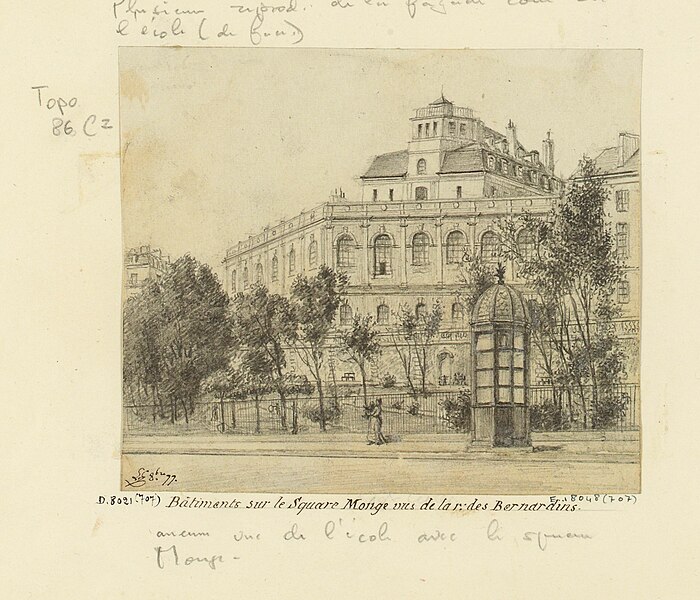 Plusieurs reprod. de la façade cour de
l'école (de face)
Topo
86 C2
8bre 77.
D.8021(707) Bâtiments sur le Square Monge vus de la r. des Bernardins. Ep.18048(707)
aucune vue de l'école avec le square
Monge-